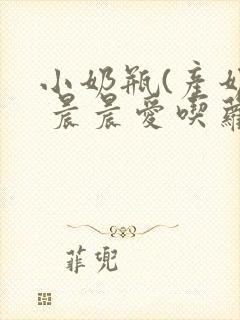 小奶瓶(產奶
晨晨愛喫蘿
菲兜